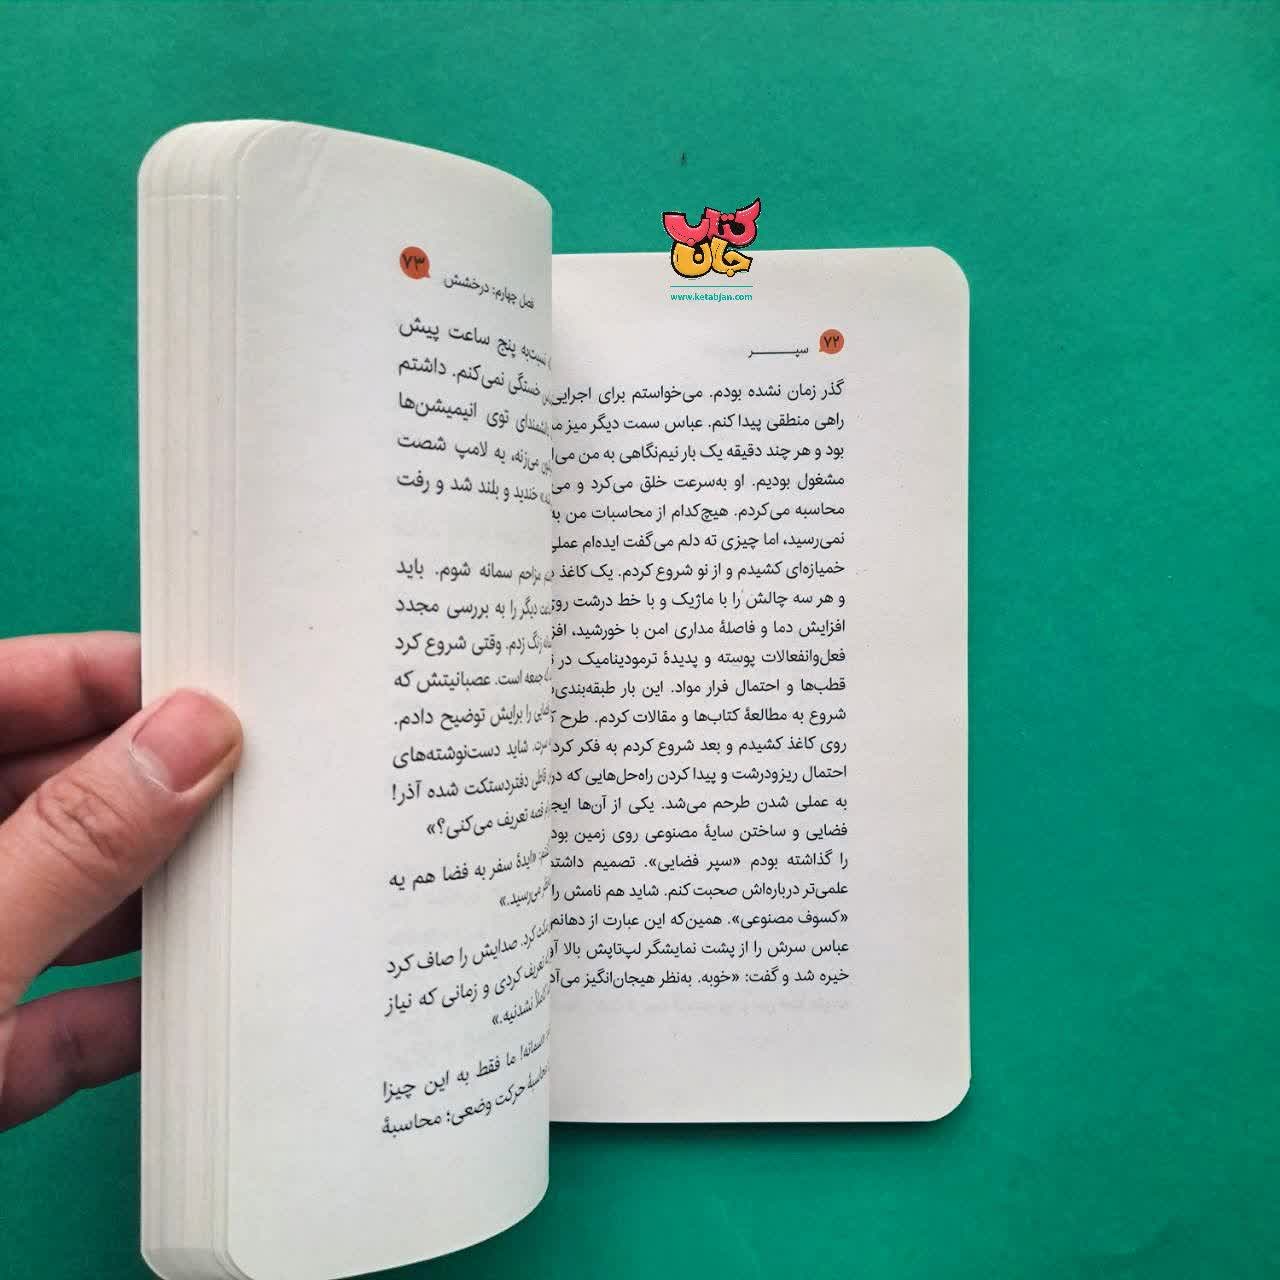 کتاب
جان
www.ketabjan.com
۷۲ سپر
گذر زمان نشده بودم. می‌خواستم برای اجرایی
راهی منطقی پیدا کنم. عباس سمت دیگر میز
بود و هر چند دقیقه یک بار نیم‌نگاهی به من
مشغول بودیم. او به‌سرعت خلق می‌کرد و
محاسبه می‌کردم. هیچ‌کدام از محاسبات من
نمی‌رسید، اما چیزی ته دلم می‌گفت ایده‌ام
خمیازه‌ای کشیدم و از نو شروع کردم. یک کاغذ
و هر سه چالش را با ماژیک و با خط درشت روی
افزایش دما و فاصلهٔ مداری امن با خورشید،
فعل‌وانفعالات پوسته و پدیدهٔ ترمودینامیک در
قطب‌ها و احتمال فرار مواد. این بار
شروع به مطالعهٔ کتاب‌ها و مقالات کردم. طرح
روی کاغذ کشیدم و بعد شروع کردم به فکر
احتمال ریزودرشت و پیدا کردن راه‌حل‌هایی که
به عملی شدن طرحم می‌شد. یکی از آن‌ها
فضایی و ساختن سایهٔ مصنوعی روی زمین
را گذاشته بودم «سپر فضایی». تصمیم
علمی‌تر درباره‌اش صحبت کنم. شاید هم نامش را
«کسوف مصنوعی». همین‌که این عبارت از
عباس سرش را از پشت نمایشگر لپ‌تاپش بالا
خیره شد و گفت: «خوبه. به‌نظر هیجان‌انگیز
فصل چهارم: درخشش ۷۳
نسبت‌به پنج ساعت پیش
خستگی نمی‌کنم. داشتم
توی انیمیشن‌ها
می‌زنه، یه لامپ شصت
خندید و بلند شد و رفت
مزاحم سمانه شوم. باید
دیگر را به بررسی مجدد
زنگ زدم. وقتی شروع کرد
جمعه است. عصبانیتش که
را برایش توضیح دادم.
شاید دست‌نوشته‌های
قاطی دفتردستکت شده آذر!
قصه تعریف می‌کنی؟»
«ایدهٔ سفر به فضا هم یه
می‌رسید.»
صدایش را صاف کرد
تعریف کردی و زمانی که نیاز
نشدنیه.»
ما فقط به این چیزا
حرکت وضعی؛ محاسبهٔ